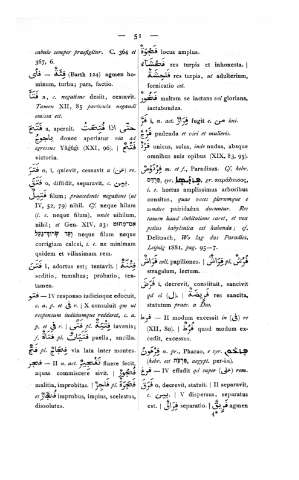 — 51 —
cabulo semper praefigitur. C. 364 et
367, 6.
فِئَةٌ — فَأَى (Barth 124) agmen ho-
minum, turba; pars, factio.
فَتَأَ a, c. negatione desiit, cessavit.
Tamen XII, 85 particula negandi
omissa est.
فَتَحَ a, aperuit. حَتَّى إِذَا فُتِحَتْ
donec aperiatur via ad
agressus Yâǵûǵi (XXI, 96); فَتْحٌ
victoria.
فَتَرَ o, i, quievit, cessavit a (عن) re.
فَتَقَ o, diffidit, separavit, c.
فَتِيلٌ filum; praecedente negatione (ut
IV, 52, 79) nihil. Cf. neque hilum
(i. e. neque filum), unde nihilum,
nihil; et Gen XIV, 23:
neque filum neque
corrigiam calcei, i. e. ne minimam
quidem et vilissimam rem.
فَتَنَ i, adortus est; tentavit. فِتْنَةٌ
seditio, tumultus; probatio, ten-
tamen.
فتى — IV responso iudicioque edocuit,
c. a. p. et في r.; X consuluit qui ut
responsum iudiciumque redderet, c. a.
p. et في r. | فَتًى pl. فِتْيَةٌ iuvenis;
f. فَتَاةٌ pl. فَتَيَاتٌ puella, ancilla.
فَجٌّ pl. فِجَاجٌ via lata inter montes.
فجر — II a, aut. تَفْجِيرٌ fluere fecit,
aquas commiscere sivit. | فُجُورٌ
malitia, improbitas. | فَاجِرٌ pl. فَجَرَةٌ
et فُجَّارٌ improbus, impius, scelestus,
dissolutus.
فَجْوَةٌ locus amplus.
فَحْشَاءُ res turpis et inhonesta; |
فَاحِشَةٌ res turpis, ut adulterium,
fornicatio est.
فَخُورٌ multum se iactans sui glorians,
iactabundus.
فَرَّ i, n. act. فِرَارٌ fugit c. من ind.
فَرْجٌ pudenda et viri et mulieris.
فَرْدٌ unicus, solus, inde nudus, absque
omnibus suis opibus (XIX, 83, 95).
فِرْدَوْسٌ m. et f., Paradisus. Cf. hebr.
פַּרְדֵּס, syr. gr. παράδεισος,
i. e. hortus amplissimus arboribus
consitus, quae voces plerumque e
zendav pairidaêza ducuntur. Res
tamen haud dubitatione caret, et vox
potius babylonica est habenda; cf.
Delitzsch, Wo lag das Paradies,
Leipzig 1881. pag. 95—7.
فَرَاشٌ coll. papiliones. | فِرَاشٌ pl. فُرُشٌ
stragulum, lectum.
فَرَضَ i, decrevit, constituit, sancivit
qd ei (لِ). فَرِيضَةٌ res sancita,
dos uxoris.
فرط — II modum excessit in (في) re
(XII, 80). | فُرُطٌ quod modum ex-
cedit, excessus.
فِرْعَوْنُ n. pr., Pharao, r syr.
(hebr. est פַּרְעֹה, aegypt. per-âa).
فرغ — IV effudit qd super (على) rem.
فَرَقَ o, decrevit, statuit. | II separavit,
c. بين. | V dispersus, separatus
est. | فِرَاقٌ separatio. | فَرِيقٌ agmen